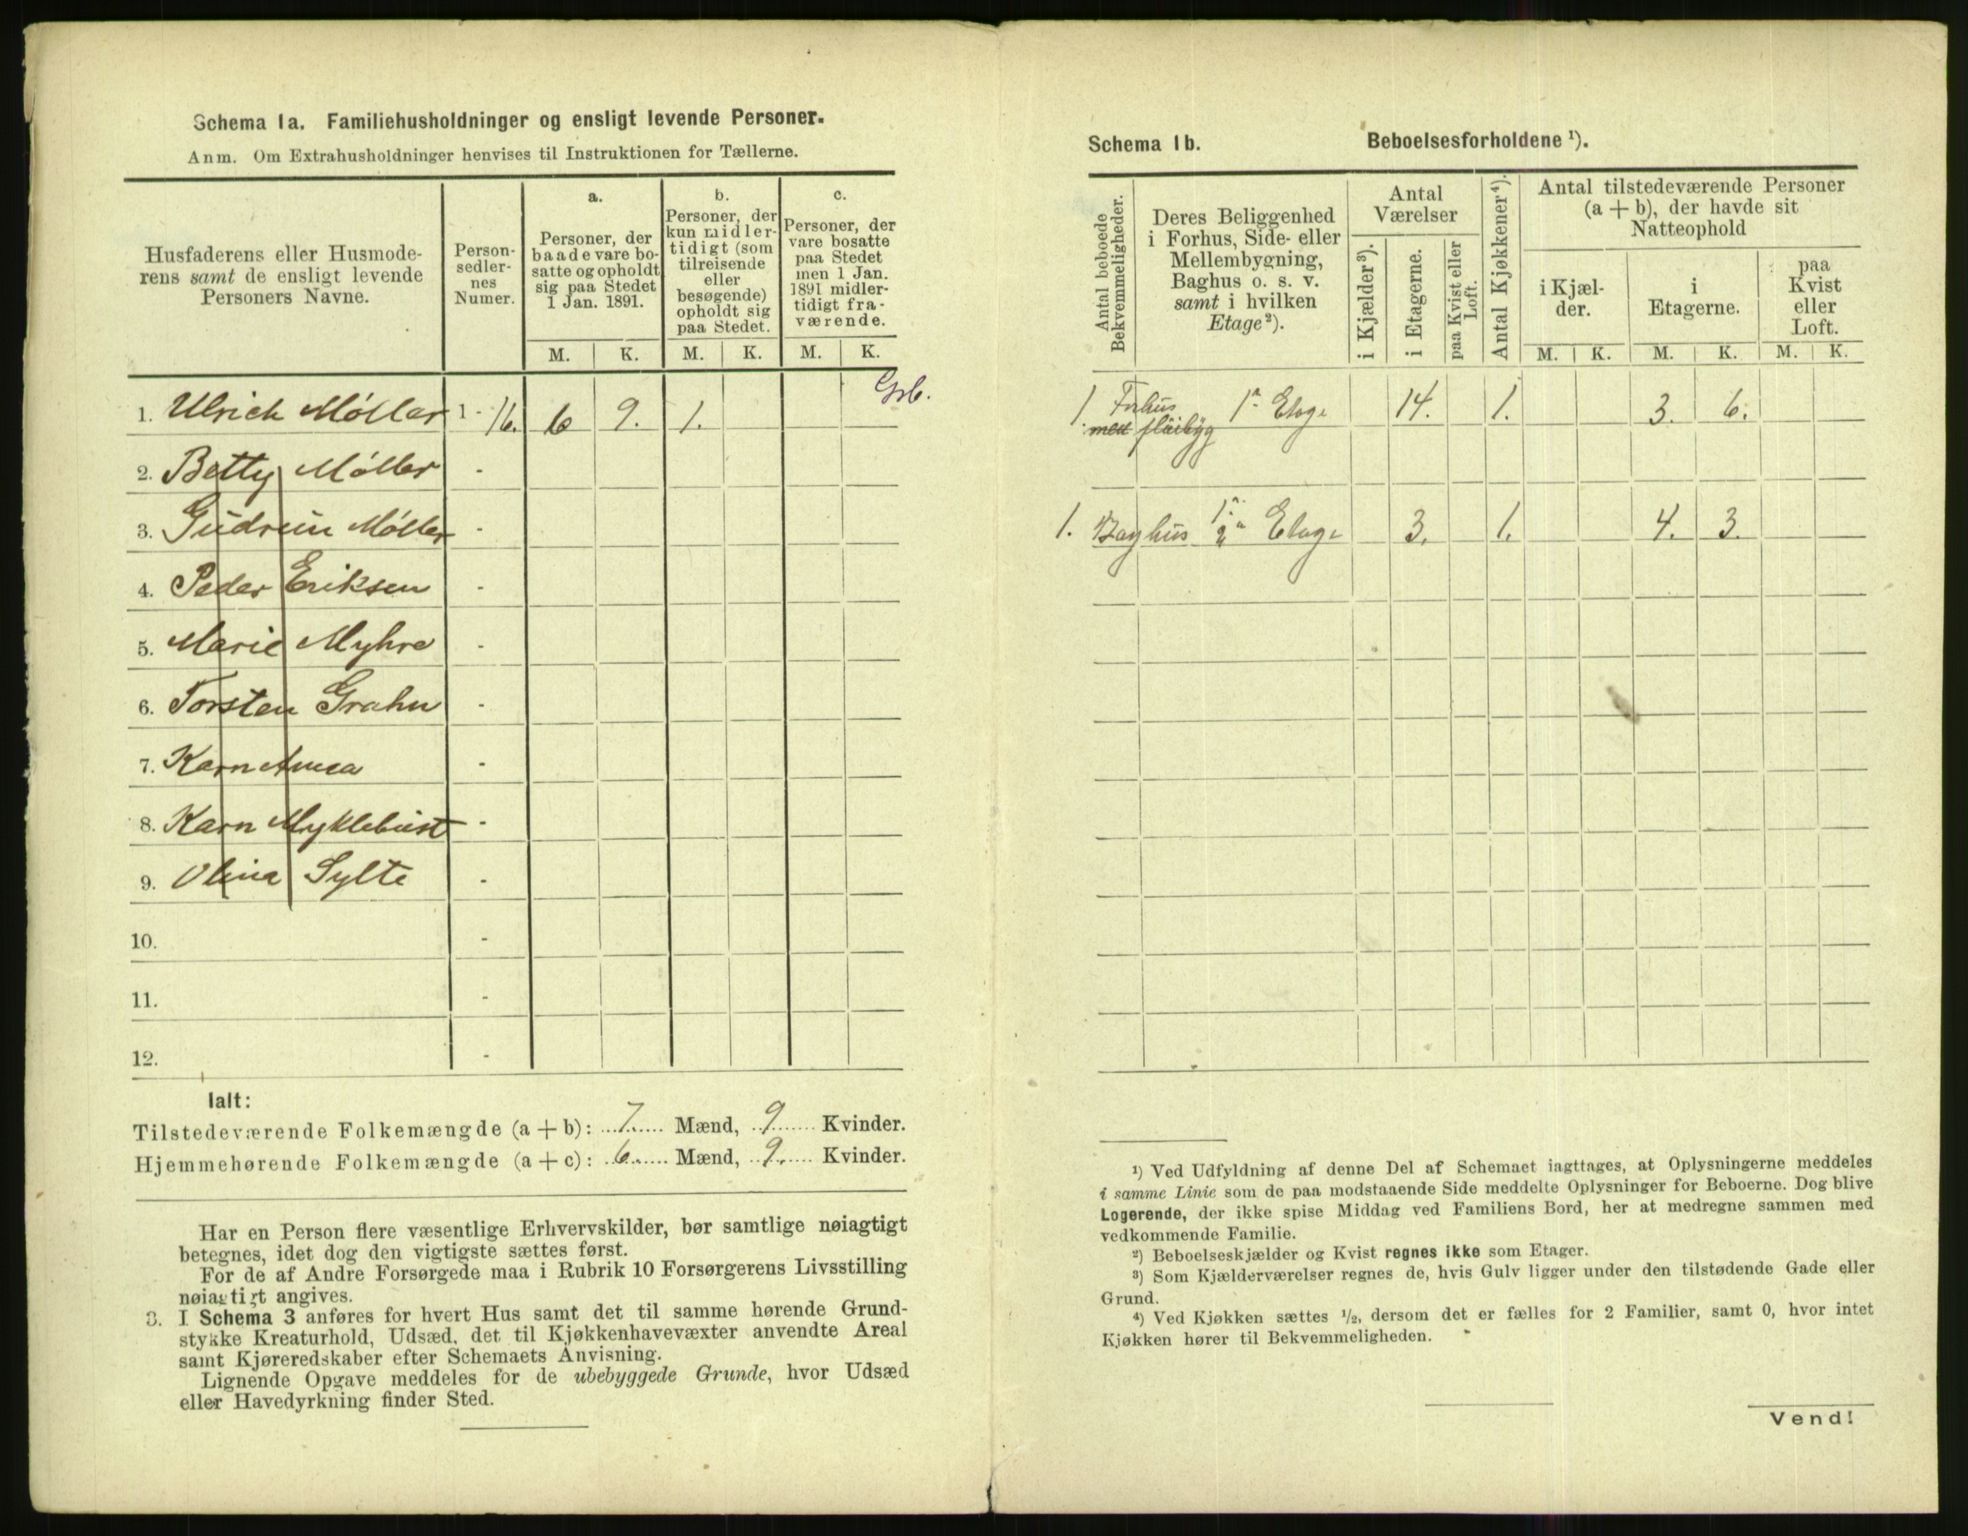 Schema 1a. Familiehusholdninger og ensligt levende Personer.
Anm. Om Extrahusholdninger henvises til Instruktionen for Tællerne.
Husfaderens eller Husmode-
rens samt de ensligt levende
Personers Navne.
Person-
sedler-
nes
Numer.
a.
Personer, der
baade vare bo-
satte og opholdt
sig paa Stedet
1 Jan. 1891.
b.
Personer, der
kun midler-
tidigt (som
tilreisende
eller
besøgende)
opholdt sig
paa Stedet.
c.
Personer, der
vare bosatte
paa Stedet
men 1 Jan.
1891 midler-
tidigt fra-
værende.
M. K. M. K. M. K.
1. Ulrich Møller 1 - 16. 6 9. 1.
2. Betty Møller -
3. Gudrun Møller -
4. Peder Eriksen -
5. Marie Myhre -
6. Torsten Grahn -
7. Karn -
8. Karn Myklebust -
9. Olina Sylte -
10. -
11. -
12. -
Ialt:
Tilstedeværende Folkemængde (a + b): 7. Mænd, 9. Kvinder.
Hjemmehørende Folkemængde (a + c): 6. Mænd, 9. Kvinder.
Har en Person flere væsentlige Erhvervskilder, bør samtlige nøiagtigt
betegnes, idet dog den vigtigste sættes først.
For de af Andre Forsørgede maa i Rubrik 10 Forsørgerens Livsstilling
nøiagtigt angives.
3. I Schema 3 anføres for hvert Hus samt det til samme hørende Grund-
stykke Kreaturhold, Udsæd, det til Kjøkkenhavevæxter anvendte Areal
samt Kjøreredskaber efter Schemaets Anvisning.
Lignende Opgave meddeles for de ubebyggede Grunde, hvor Udsæd
eller Havedyrkning finder Sted.
Schema 1b. Beboelsesforholdene ¹).
Antal beboede
Bekvemmeligheder.
Deres Beliggenhed
i Forhus, Side- eller
Mellembygning,
Baghus o. s. v.
samt i hvilken
Etage²).
Antal
Værelser
i Kjælder³).
i Etagerne.
paa Kvist eller
Loft.
Antal Kjøkkener⁴).
Antal tilstedeværende Personer
(a + b), der havde sit
Natteophold
i Kjæl-
der.
i
Etagerne.
paa
Kvist
eller
Loft.
M. K. M. K. M. K.
1. Forhus 1ª Etage 14. 1. 3. 6.
med
1. Baghus 1ª 2ª Etage 3. 1. 4. 3.
¹) Ved Udfyldning af denne Del af Schemaet iagttages, at Oplysningerne meddeles
i samme Linie som de paa modstaaende Side meddelte Oplysninger for Beboerne. Dog blive
Logerende, der ikke spise Middag ved Familiens Bord, her at medregne sammen med
vedkommende Familie.
²) Beboelseskjælder og Kvist regnes ikke som Etager.
³) Som Kjælderværelser regnes de, hvis Gulv ligger under den tilstødende Gade eller
Grund.
⁴) Ved Kjøkken sættes ½, dersom det er fælles for 2 Familier, samt 0, hvor intet
Kjøkken hører til Bekvemmeligheden.
Vend!